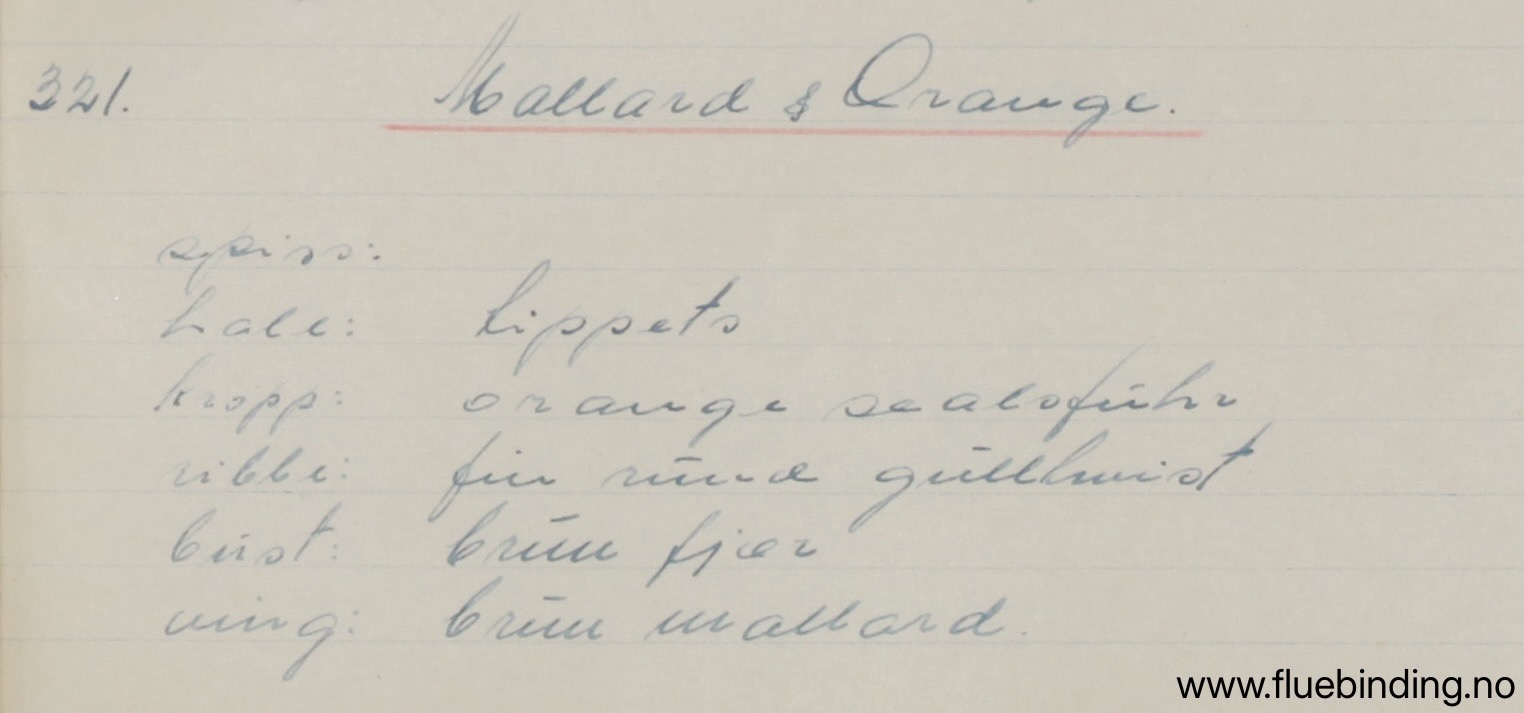 321. Mallard & Orange.
spiss:
hale: tippets
kropp: orange sealsfuhr
ribbe: fin rund gulltwist
bust: brun fjær
ving: brun mallard.
www.fluebinding.no